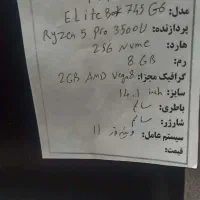 مدل: ELite Book 745 G6
پردازنده: Ryzen 5 Pro 3500U
هارد: 256 Nvme
رم: 8 GB
گرافیک مجزا: 2GB AMD Vega8
سایز: 14.1 inch
باطری: سالم
شارژر: سالم
سیستم عامل: ویندوز 11
قیمت: